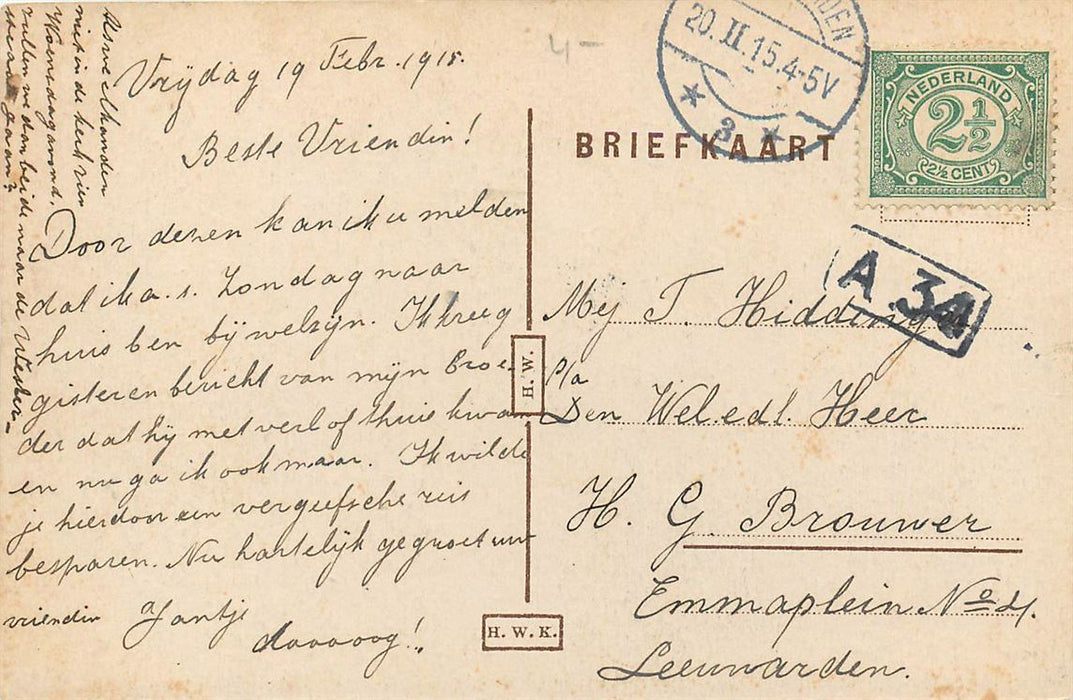 Vrijdag 19 Febr. 1915.
Beste Vriendin!
Door dezen kan ik u melden
dat ik a.s. Zondag naar
huis ben bij welzijn. Ik kreeg
gisteren bericht van mijn Broe-
der dat hij met verlof thuis kwam
en nu ga ik ook maar. Ik wilde
je hierdoor een vergeefsche reis
besparen. Nu hartelijk gegroet uw
vriendin Jantje
daaoog!!
elkanden
niet in de kerk zien
Woensdagavond,
zullen we dan beide naar de Wester-
gaan?
20.II.15.4-5V
DEN
3
4-
NEDERLAND
2½
2½ CENT
BRIEFKAART
A.34
Mej T. Hidding
p/a
Den Wel.edl. Heer
H. G. Brouwer
Emmaplein No 4.
Leeuwarden.
H.W.
H.W.K.